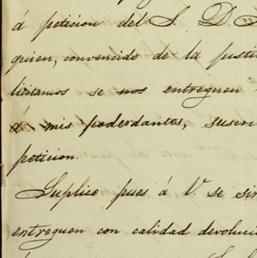 á peticion del S. D.
quien, convencido de la justi
licitamos se nos entreguen
á mis poderdantes, suscri
peticion.
Suplico pues á V. se sir
entreguen con calidad devoluci